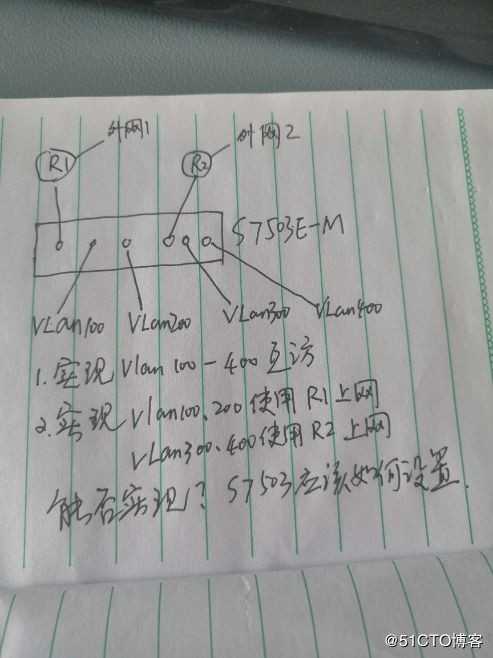 外网1
外网2
R1
R2
S7503E-M
VLan100
VLan200
VLan300
VLan400
1. 实现 Vlan 100-400 互访
2. 实现 Vlan100.200 使用 R1 上网
VLan300.400 使用 R2 上网
能否实现? S7503应该如何设置.
@51CTO博客